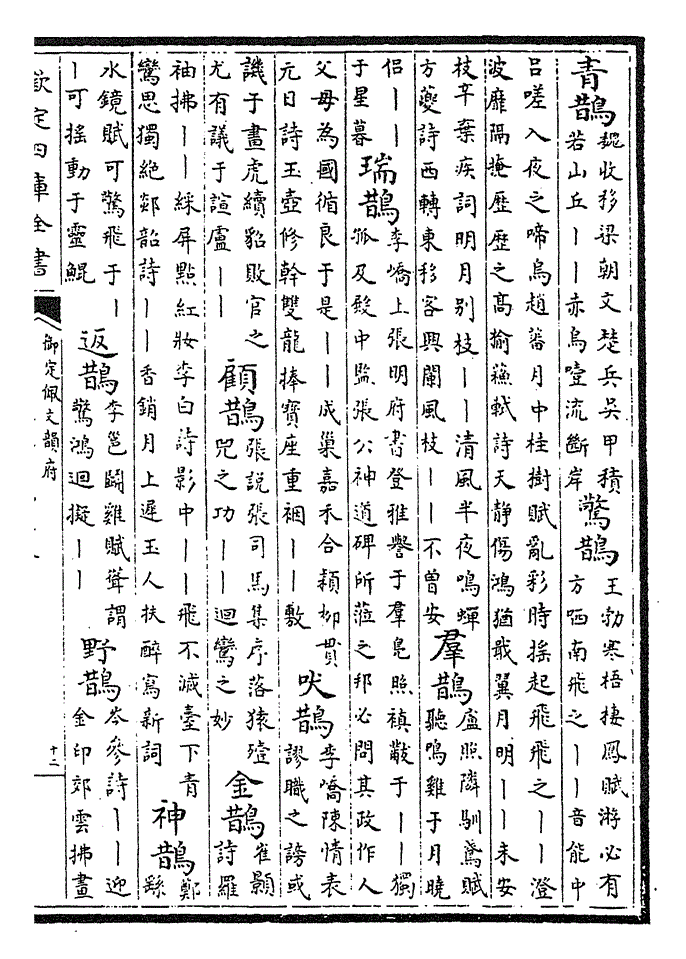 青鵲
魏收移梁朝文楚兵吳甲積
若山丘丨丨赤烏噎流斷岸
驚鵲
王勃寒梧棲鳳賦游必有
方哂南飛之丨丨音能中
呂嗟入夜之啼烏趙蕃月中桂樹賦亂彩時搖起飛飛之丨丨澄
波靡隔掩歷歷之高揄蘓軾詩天静傷鴻猶戢翼月明丨丨未安
枝辛棄疾詞明月别枝丨丨清風半夜鳴蟬
方夔詩西轉東移客興闌風枝丨丨不曾安
羣鵲
盧照隣馴鳶賦
聽鳴雞于月曉
侶丨丨
于星暮
瑞鵲
李嶠上張明府書登雅譽于羣鳧照禎黻于丨丨獨
孤及殿中監張公神道碑所涖之邦必問其政作人
父母為國循良于是丨丨成巢嘉禾合穎柳貫
元日詩玉壺修幹雙龍捧寶座重裀丨丨敷
吠鵲
李嶠陳情表
謬職之謗或
譏于畫虎續貂敗官之
尤有議于諠盧丨丨
顧鵲
張説張司馬集序落猿殪
兕之功丨丨迴鸞之妙
金鵲
崔顥
詩羅
袖拂丨丨綵屏點紅妝李白詩影中丨丨飛不滅臺下青
鸞思獨絶郯韶詩丨丨香銷月上遲玉人扶醉寫新詞
神鵲
鄭
繇
水鏡賦可驚飛于丨
丨可搖動于靈鯤
返鵲
李邕鬭雞賦聳謂
驚鴻迴擬丨丨
野鵲
岑參詩丨丨迎
金印郊雲拂畫
欽定四庫全書
御定佩文韻府
十二